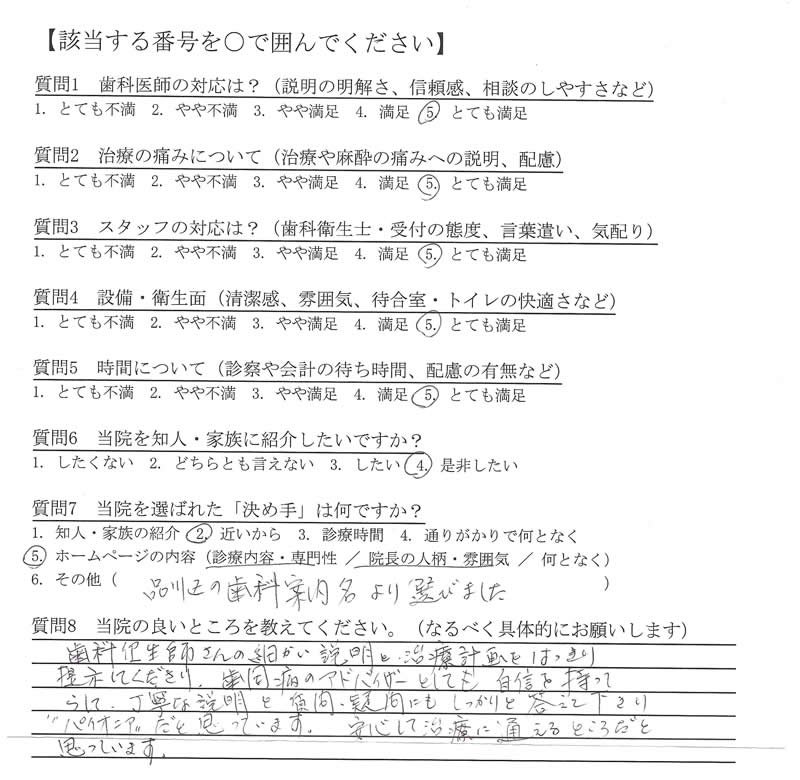 【該当する番号を〇で囲んでください】
質問1 歯科医師の対応は？（説明の明解さ、信頼感、相談のしやすさなど）
1. とても不満 2. やや不満 3. やや満足 4. 満足 5. とても満足
質問2 治療の痛みについて（治療や麻酔の痛みへの説明、配慮）
1. とても不満 2. やや不満 3. やや満足 4. 満足 5. とても満足
質問3 スタッフの対応は？（歯科衛生士・受付の態度、言葉遣い、気配り）
1. とても不満 2. やや不満 3. やや満足 4. 満足 5. とても満足
質問4 設備・衛生面（清潔感、雰囲気、待合室・トイレの快適さなど）
1. とても不満 2. やや不満 3. やや満足 4. 満足 5. とても満足
質問5 時間について（診察や会計の待ち時間、配慮の有無など）
1. とても不満 2. やや不満 3. やや満足 4. 満足 5. とても満足
質問6 当院を知人・家族に紹介したいですか？
1. したくない 2. どちらとも言えない 3. したい 4. 是非したい
質問7 当院を選ばれた「決め手」は何ですか？
1. 知人・家族の紹介 2. 近いから 3. 診療時間 4. 通りがかりで何となく
5. ホームページの内容（診療内容・専門性 ／ 院長の人柄・雰囲気 ／ 何となく）
6. その他（ 品川区の歯科案内名より選びました ）
質問8 当院の良いところを教えてください。（なるべく具体的にお願いします）
歯科衛生師さんの細かい説明と治療計画をはっきり
提示してくださり、歯周病のアドバイザーとしても自信を持って
丁寧な説明と質問、疑問にもしっかりと答えて下さり
"パイオニア"だと思っています。安心して治療に通えるところだと
思っています。